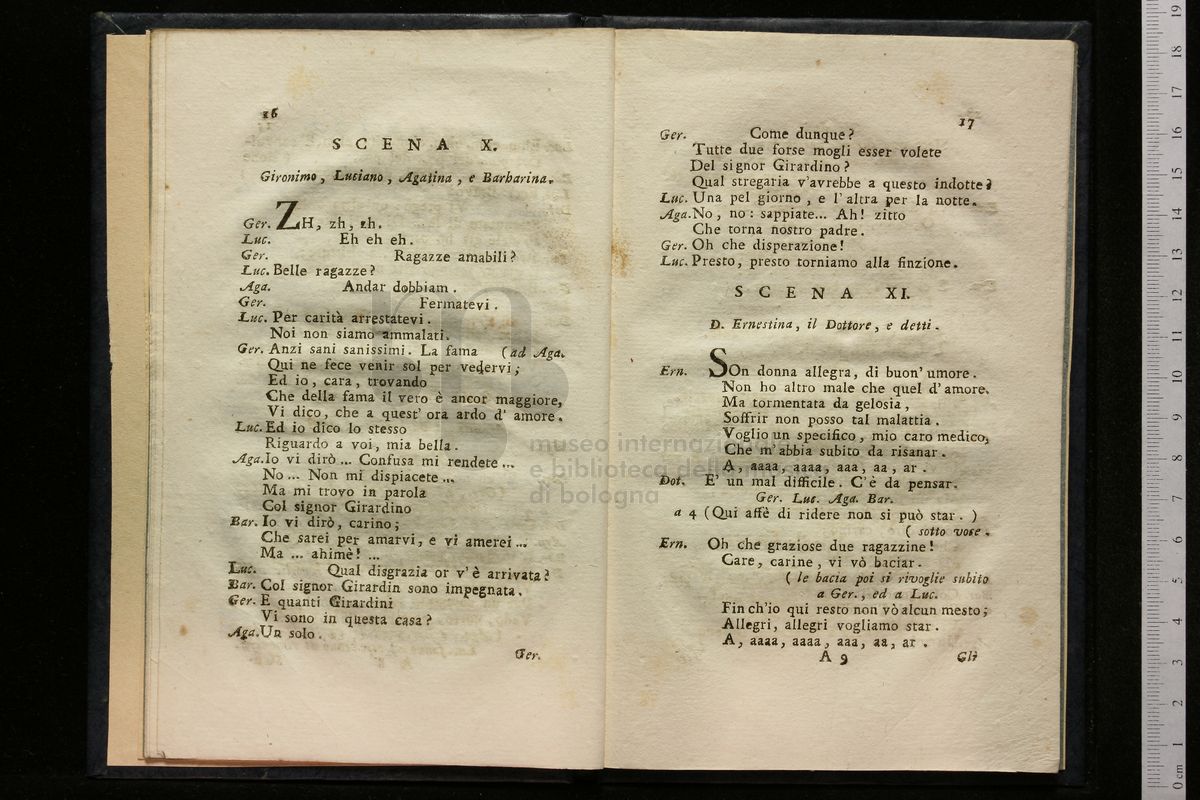 16
SCENA X.
Gironimo, Luciano, Agatina, e Barbarina.
Ger. ZH, zh, zh.
Luc. Eh eh eh.
Ger. Ragazze amabili?
Luc. Belle ragazze?
Aga. Andar dobbiam.
Ger. Fermatevi.
Luc. Per carità arrestatevi.
Noi non siamo ammalati.
Ger. Anzi sani sanissimi. La fama (ad Aga.
Qui ne fece venir sol per vedervi;
Ed io, cara, trovando
Che della fama il vero è ancor maggiore,
Vi dico, che a quest' ora ardo d' amore.
Luc. Ed io dico lo stesso
Riguardo a voi, mia bella.
Aga. Io vi dirò ... Confusa mi rendete ...
No ... Non mi dispiacete ...
Ma mi trovo in parola
Col signor Girardino
Bar. Io vi dirò, carino;
Che sarei per amarvi, e vi amerei ...
Ma ... ahimè! ...
Luc. Qual disgrazia or v' è arrivata?
Bar. Col signor Girardin sono impegnata.
Ger. E quanti Girardini
Vi sono in questa casa?
Aga. Un solo.
Ger.
17
Ger. Come dunque?
Tutte due forse mogli esser volete
Del signor Girardino?
Qual stregaria v'avrebbe a questo indotte?
Luc. Una pel giorno, e l' altra per la notte.
Aga. No, no: sappiate... Ah! zitto
Che torna nostro padre.
Ger. Oh che disperazione!
Luc. Presto, presto torniamo alla finzione.
SCENA XI.
D. Ernestina, il Dottore, e detti.
Ern. SOn donna allegra, di buon' umore.
Non ho altro male che quel d'amore.
Ma tormentata da gelosia,
Soffrir non posso tal malattia.
Voglio un specifico, mio caro medico,
Che m'abbia subito da risanar.
A, aaaa, aaaa, aaa, aa, ar.
Dot. E' un mal difficile. C'è da pensar.
Ger. Luc. Aga. Bar.
a 4 (Qui affè di ridere non si può star.)
(sotto voce.
Ern. Oh che graziose due ragazzine!
Care, carine, vi vò baciar.
(le bacia poi si rivoglie subito
a Ger., ed a Luc.
Fin ch'io qui resto non vò alcun mesto;
Allegri, allegri vogliamo star.
A, aaaa, aaaa, aaa, aa, ar.
A 9 Gli
museo internazionale
e biblioteca della musica
di bologna
0 cm 1 2 3 4 5 6 7 8 9 10 11 12 13 14 15 16 17 18 19